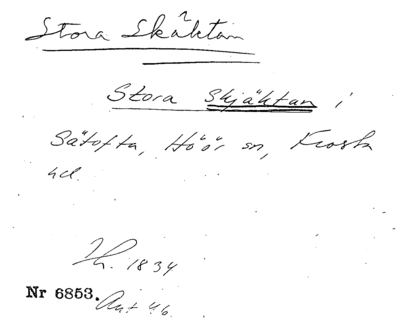 Stora Skäktan
Stora Skjäktan i
Sätofta, Höör sn, Frosta
hd.
Th. 1834
Nr 6853.
Ant 46.